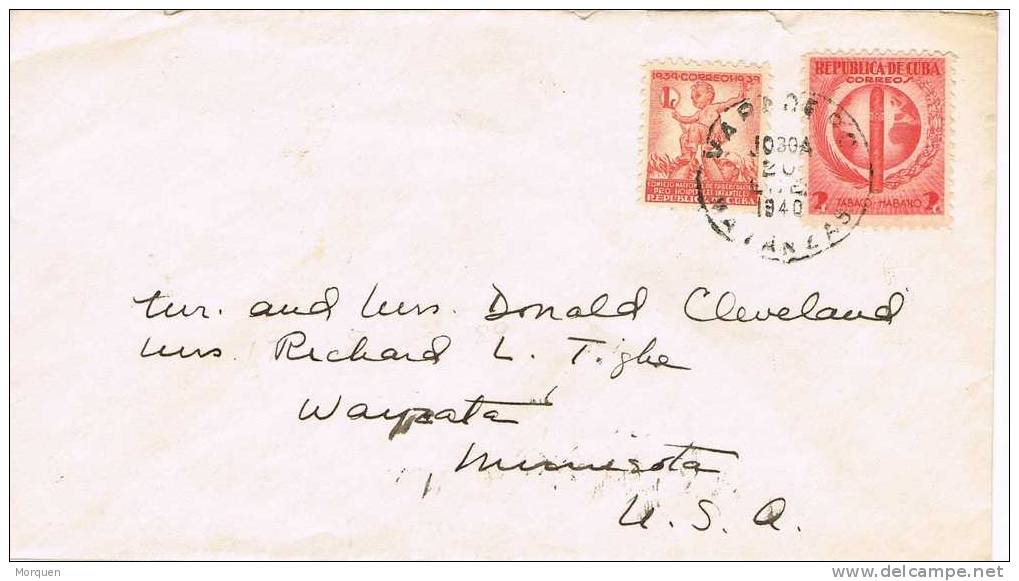 1939 CORREO 1939
1
CONSEJO NACIONAL DE TUBERCULOSIS
PRO HOSPITALES INFANTILES
REPUBLICA DE CUBA
REPUBLICA DE CUBA
CORREOS
2 TABACO-HABANO 2
VARADERO
1030A
1940
MATANZAS
Mr. and Mrs. Donald Cleveland
Mrs. Richard L. Tighe
Wayzata
Minnesota
U. S. A.
Morquen
www.delcampe.net